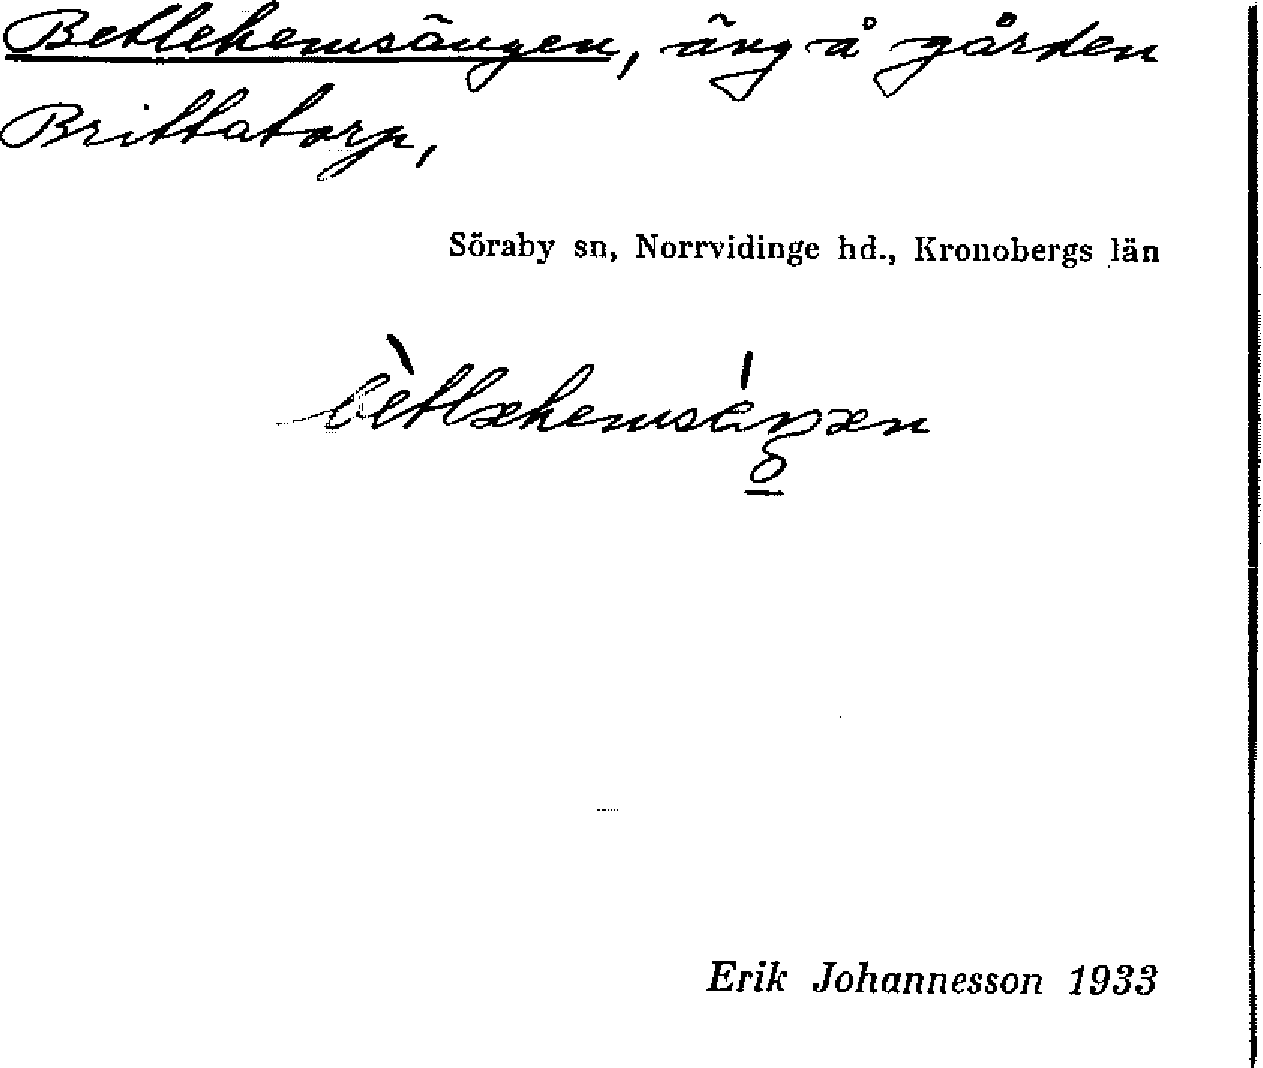 Betlehemsängen, äng å gården
Brittatorp,
Söraby sn, Norrvidinge hd., Kronobergs län
Erik Johannesson 1933